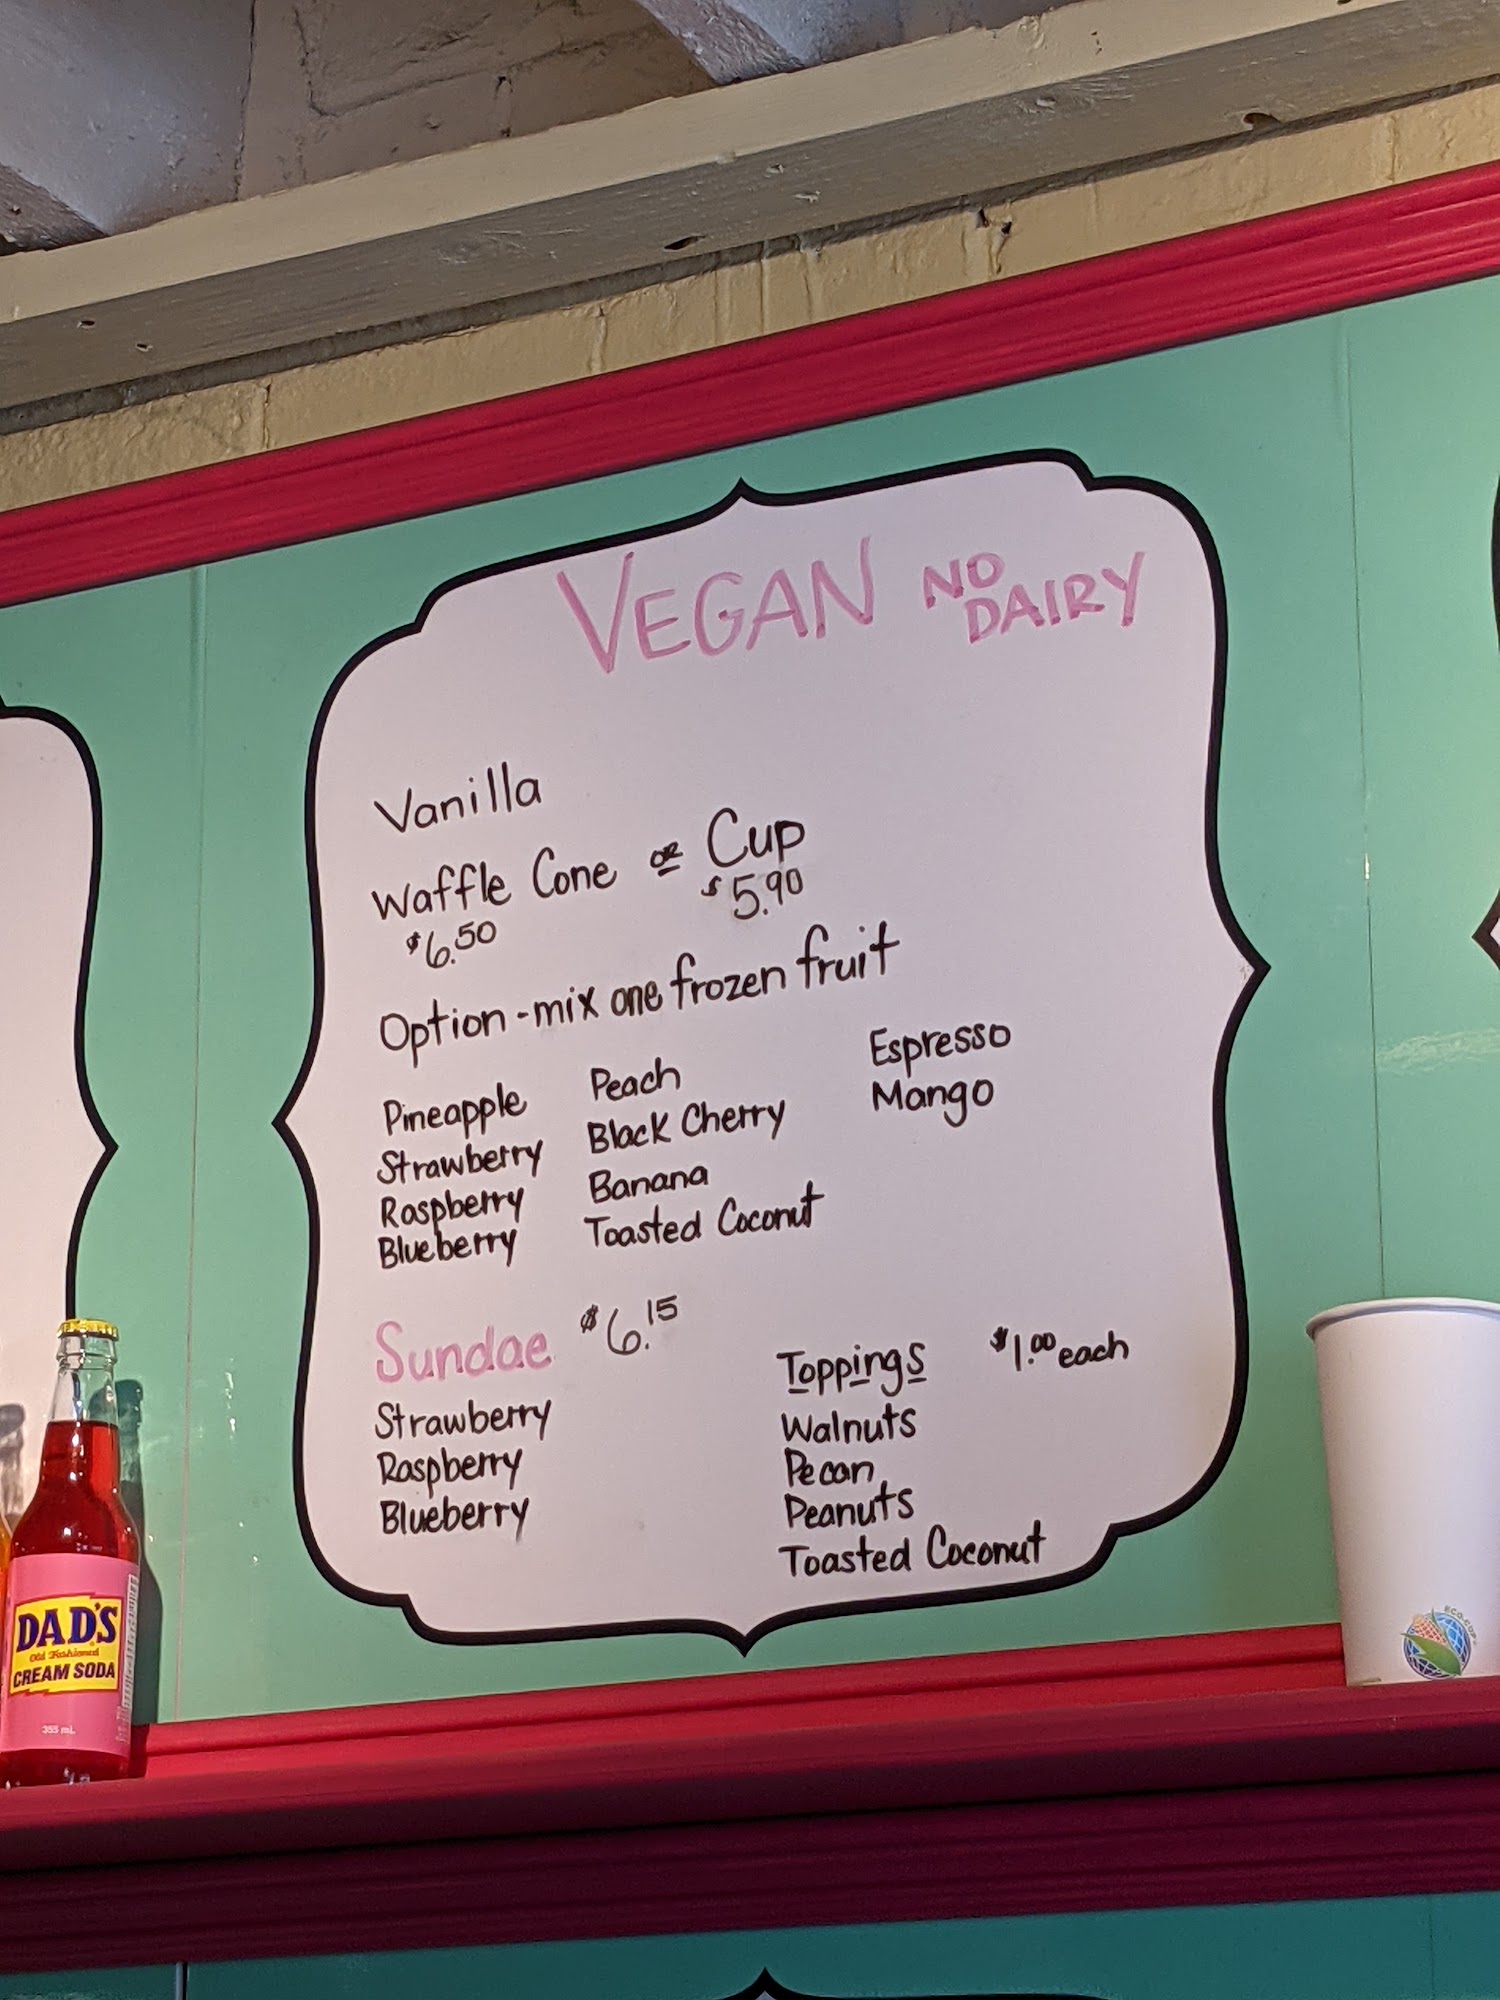 VEGAN NO DAIRY
Vanilla
Waffle Cone or Cup
$6.50 $5.90
Option - mix one frozen fruit
Pineapple
Strawberry
Raspberry
Blueberry
Peach
Black Cherry
Banana
Toasted Coconut
Espresso
Mango
Sundae $6.15
Strawberry
Raspberry
Blueberry
Toppings $1.00 each
Walnuts
Pecan
Peanuts
Toasted Coconut
DAD'S
Old Fashioned
CREAM SODA
355 mL
ECO-CUP